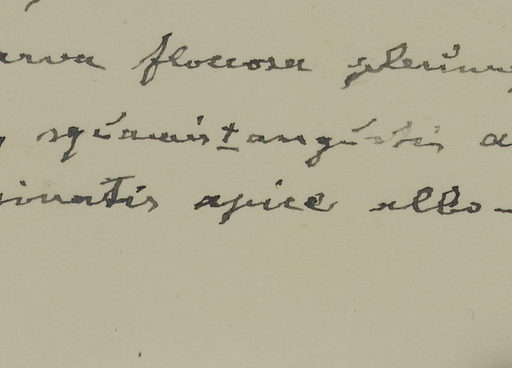 arva floccosa plerum
squamis ± angustis a
inatis apice albo-